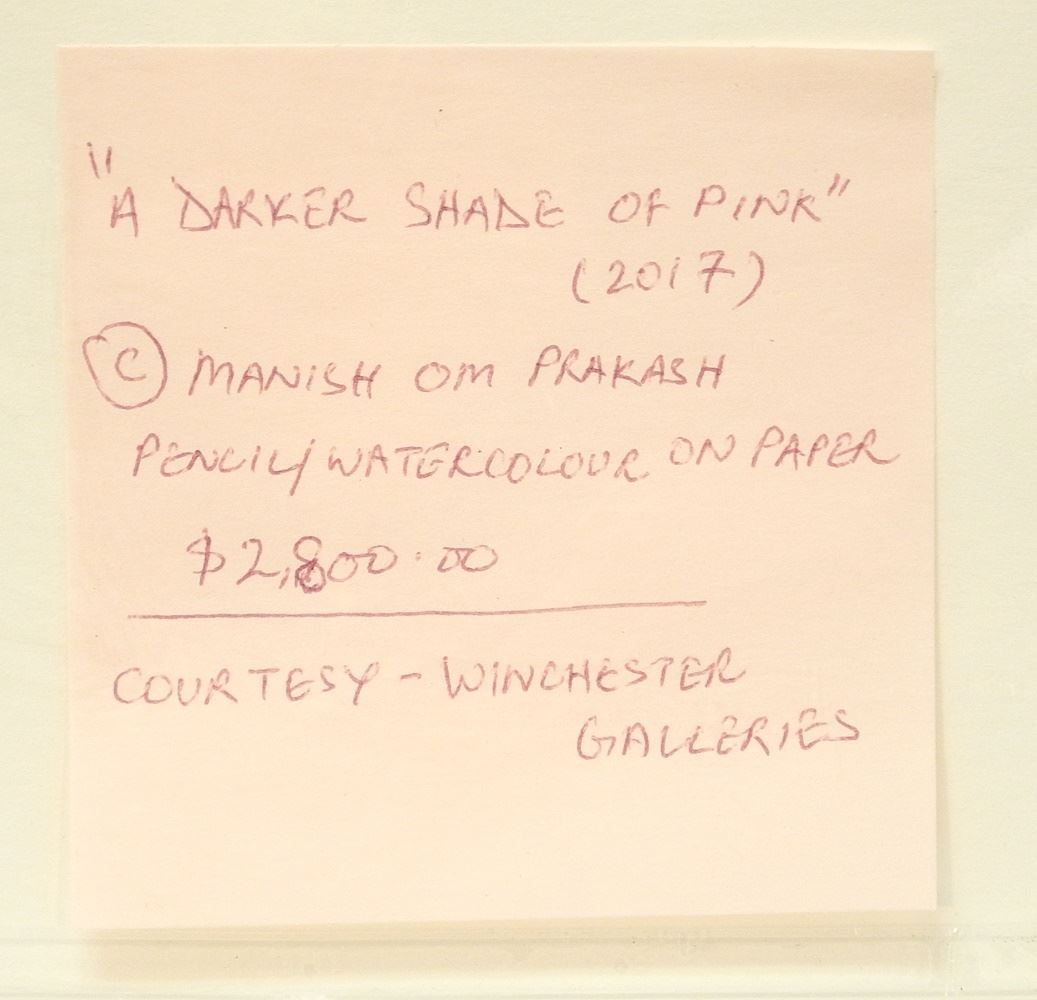 "A DARKER SHADE OF PINK"
(2017)
© MANISH OM PRAKASH
PENCIL/WATERCOLOUR ON PAPER
$2,800.00
COURTESY - WINCHESTER
GALLERIES